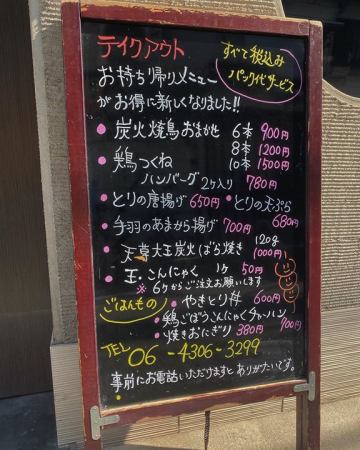 テイクアウト
すべて税込み
パック代サービス
お持ち帰りメニュー
がお得に新しくなりました!!
• 炭火焼鳥おまかせ 6本 900円
8本 1200円
10本 1500円
• 鶏つくね
ハンバーグ 2ヶ入り 780円
• とりの唐揚げ 650円 • とりの天ぷら
680円
• 手羽のあまから揚げ 700円
• 天草大王炭火ばら焼き 120g
1000円
• 玉こんにゃく 1ケ 50円
※ 6ケからご注文お願いします
ごはんもの
• やきとり丼 600円
• 鶏ごぼうこんにゃくチャーハン
700円
• 焼きおにぎり 380円
TEL 06-4306-3299
事前にお電話いただけますとありがたいです。